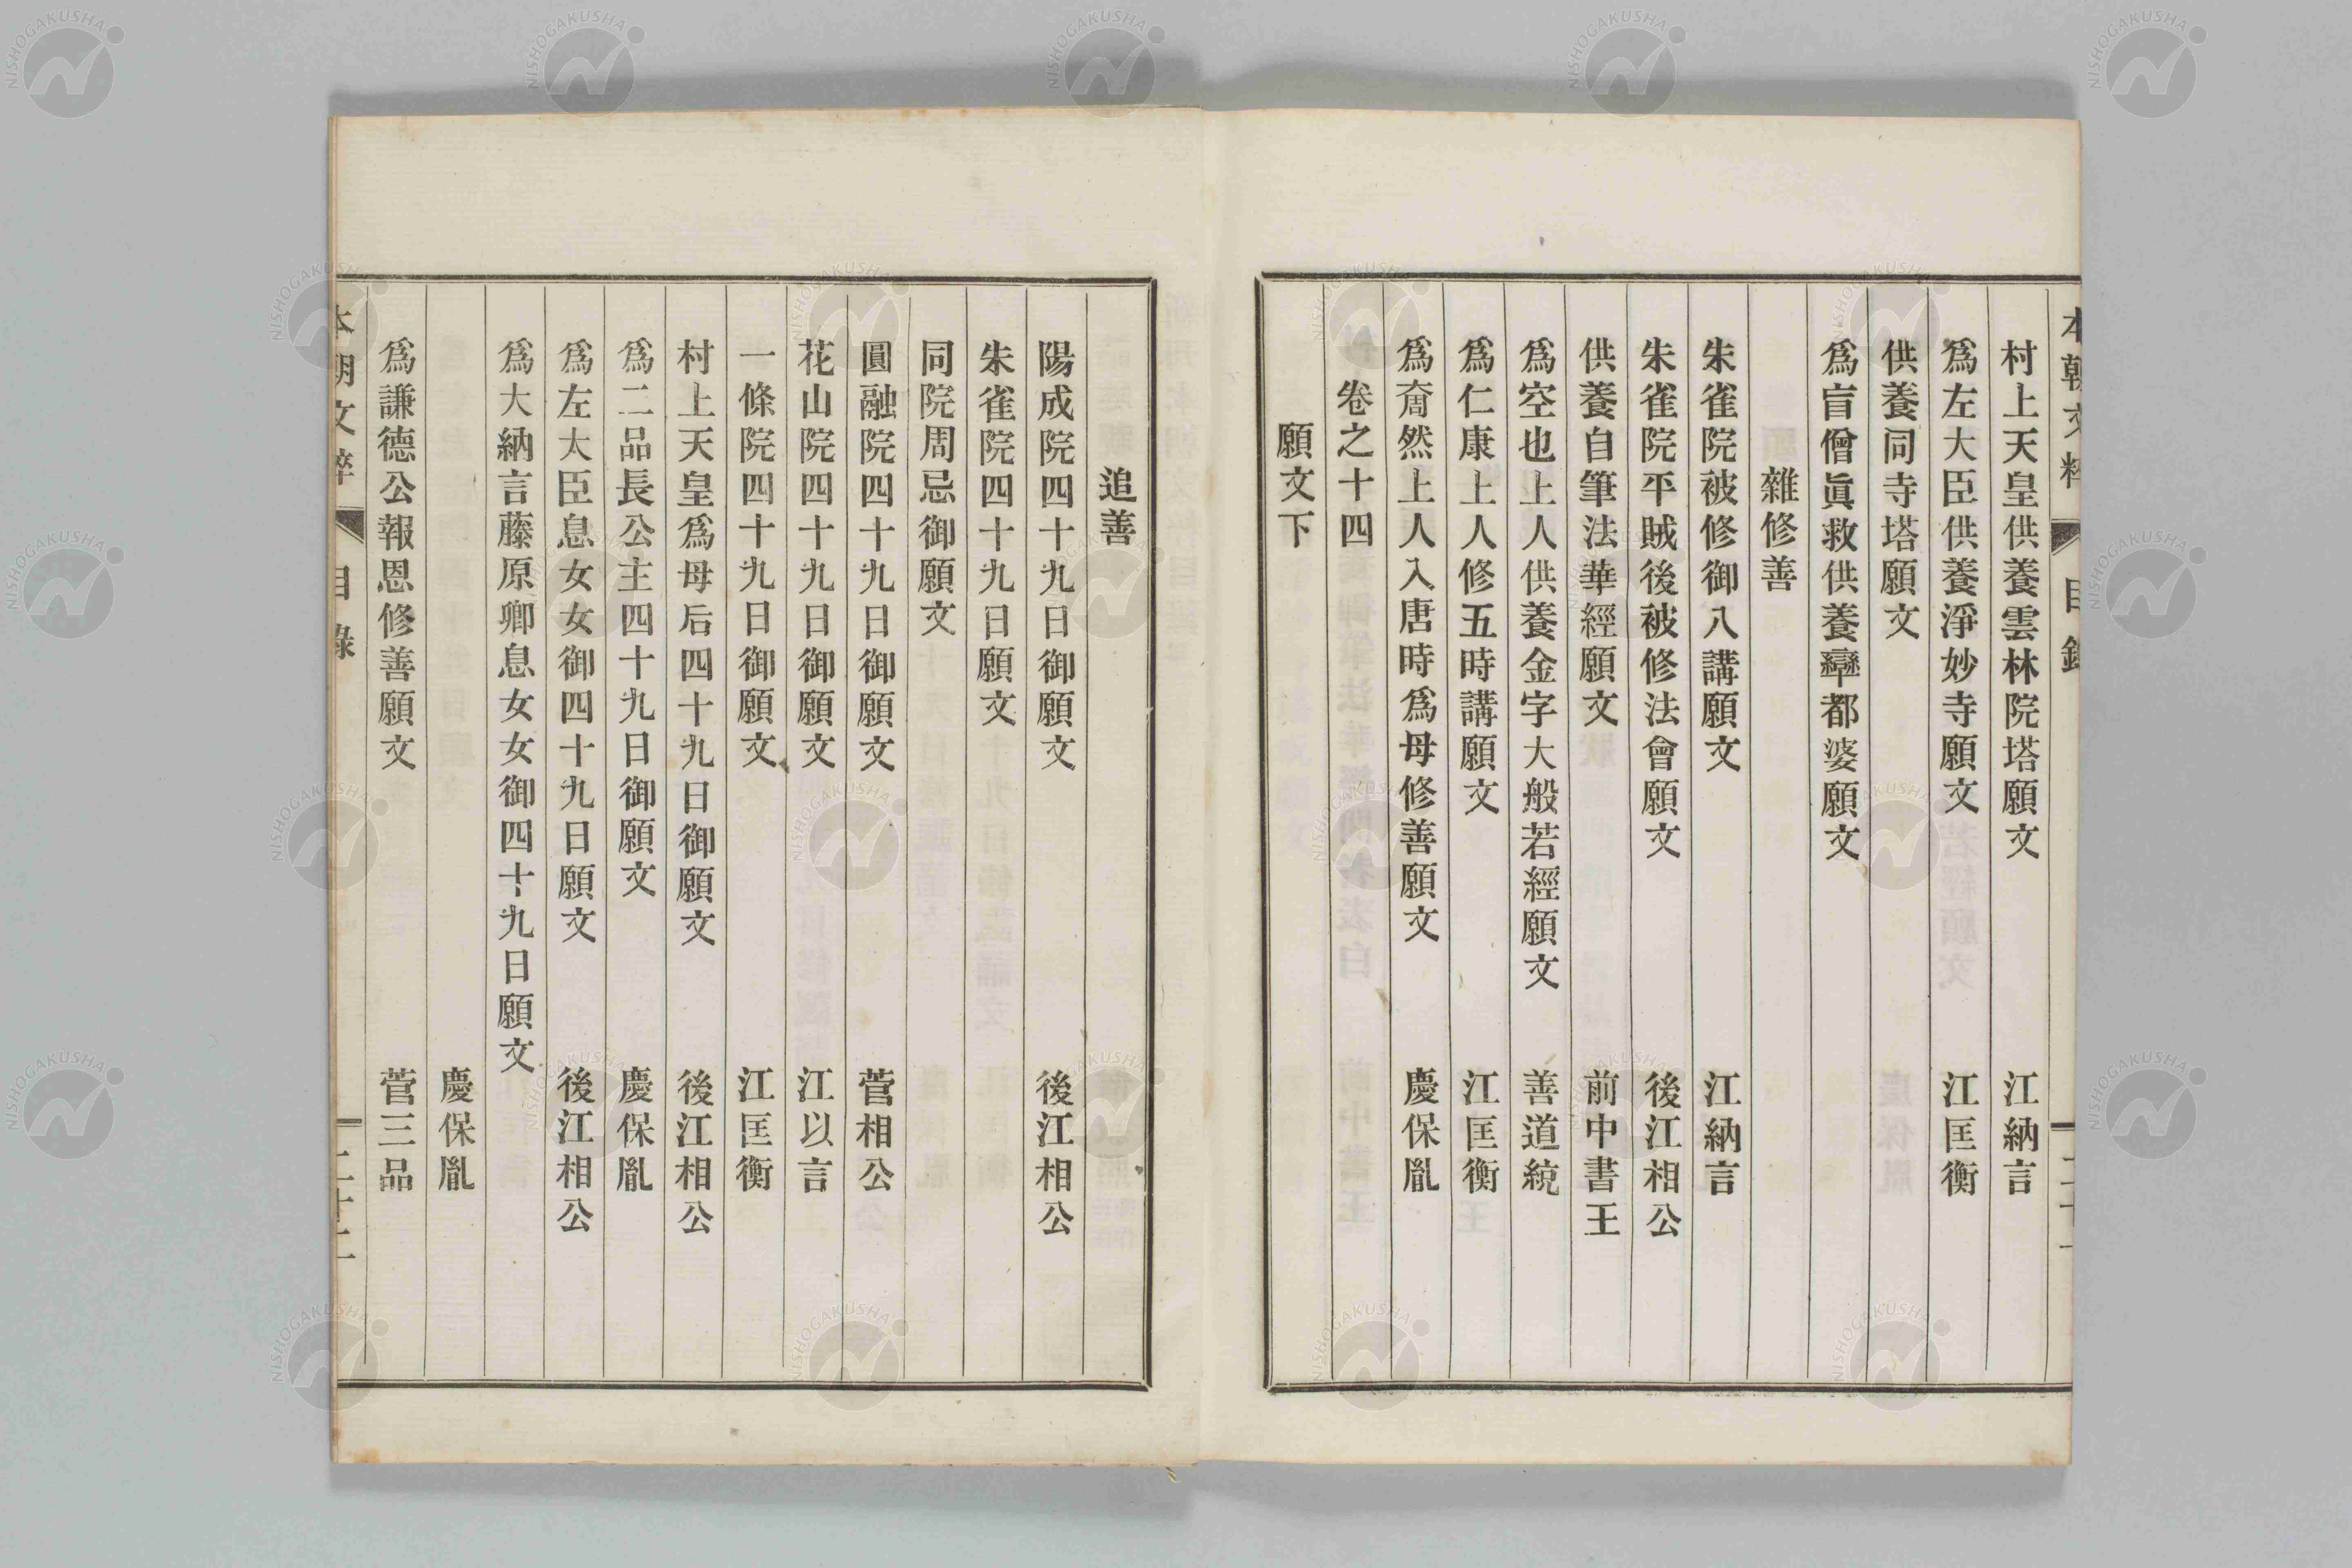 本朝文粹 目錄 二十一
村上天皇供養雲林院塔願文 江納言
爲左大臣供養淨妙寺願文 江匡衡
供養同寺塔願文
爲盲僧眞救供養率都婆願文
雜修善
朱雀院被修御八講願文 江納言
朱雀院平賊後被修法會願文 後江相公
供養自筆法華經願文 前中書王
爲空也上人供養金字大般若經願文 善道統
爲仁康上人修五時講願文 江匡衡
爲奝然上人入唐時爲母修善願文 慶保胤
卷之十四
願文下
追善
陽成院四十九日御願文 後江相公
朱雀院四十九日願文
同院周忌御願文
圓融院四十九日御願文 菅相公
花山院四十九日御願文 江以言
一條院四十九日御願文 江匡衡
村上天皇爲母后四十九日御願文 後江相公
爲二品長公主四十九日御願文 慶保胤
爲左大臣息女女御四十九日願文 後江相公
爲大納言藤原卿息女女御四十九日願文
慶保胤
爲謙德公報恩修善願文 菅三品
本朝文粹 目錄 二十二
NISHOGAKUSHA